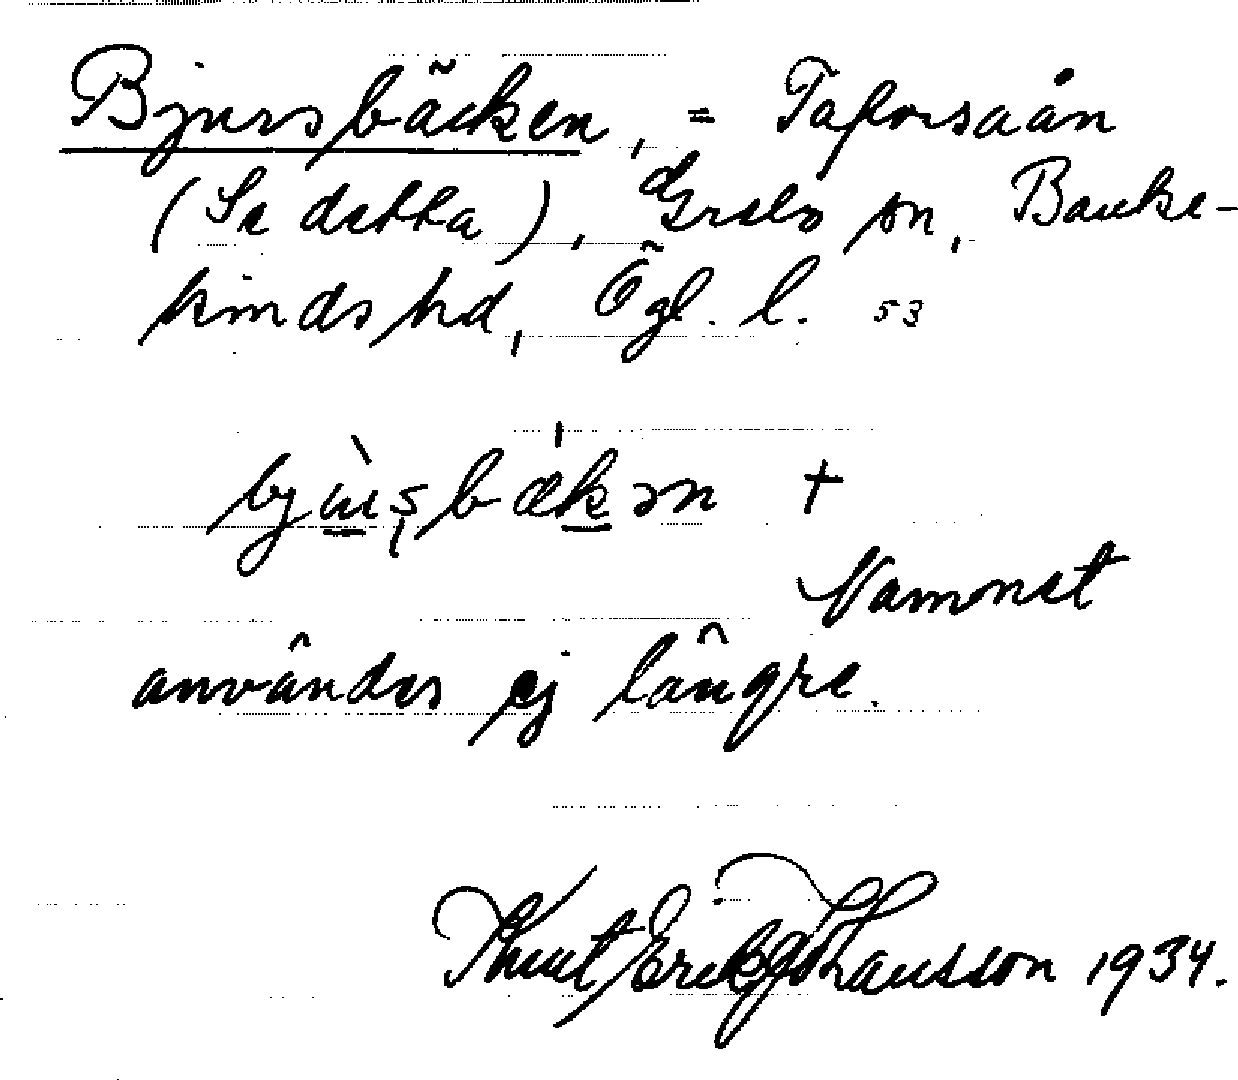 Bjursbäcken, = Taforsaån
(Se detta), Grebo sn, Banke-
kindshd, Ögl. l. 53
bju̇ʂbækən +
Namnet
användes ej längre.
Knut Erik Johansson 1934.